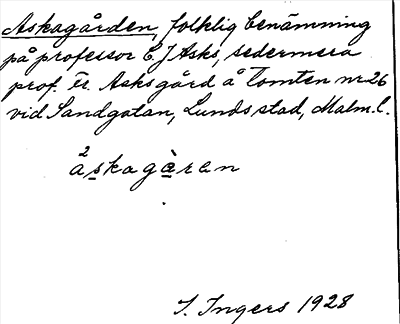 Askagården, folklig benämning
på professor E J Asks, sedermera
prof. Fr. Asks gård å tomten nr 26
vid Sandgatan, Lunds stad, Malm. l.
2
askagàren
I. Ingers 1928